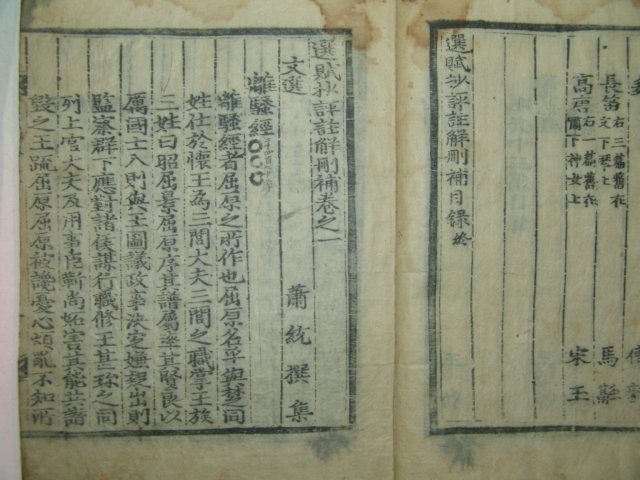 長笛 右三篇舊在文下琴上 馬融
高唐 右一篇舊在𤣥下神女上 宋玉
選賦抄評註解刪補目錄終
選賦抄評註解刪補卷之一
文選 蕭統撰集
離騷經
離騷經者屈原之所作也屈原名平與楚同
姓仕於懷王為三閭大夫三閭之職掌王族
三姓曰昭屈景屈原序其譜屬率其賢良以
厲國士入則與王圖議政事決定嫌疑出則
監察群下應對諸侯謀行職修王甚珍之同
列上官大夫及用事臣靳尚妬害其能共譖
毀之王疏屈原屈原被讒憂心煩亂不知所